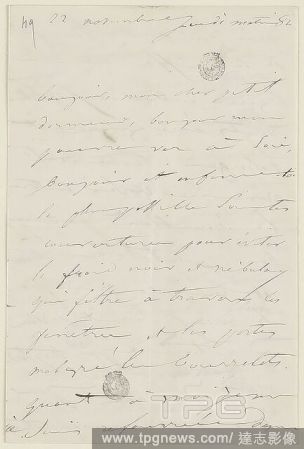 49 22 novembre jeudi matin 52
bonjour, mon cher petit
dormeur, bonjour mon
pauvre ver à soie,
bonjour et enfermez-
le plus
couvertures pour éviter
le froid noir et nébuleux
qui filtre à travers les
fenêtres et les portes
malgré les bourrelets.
Quant à moi
je suis
TPG
www.tpgnews.com/達志影像